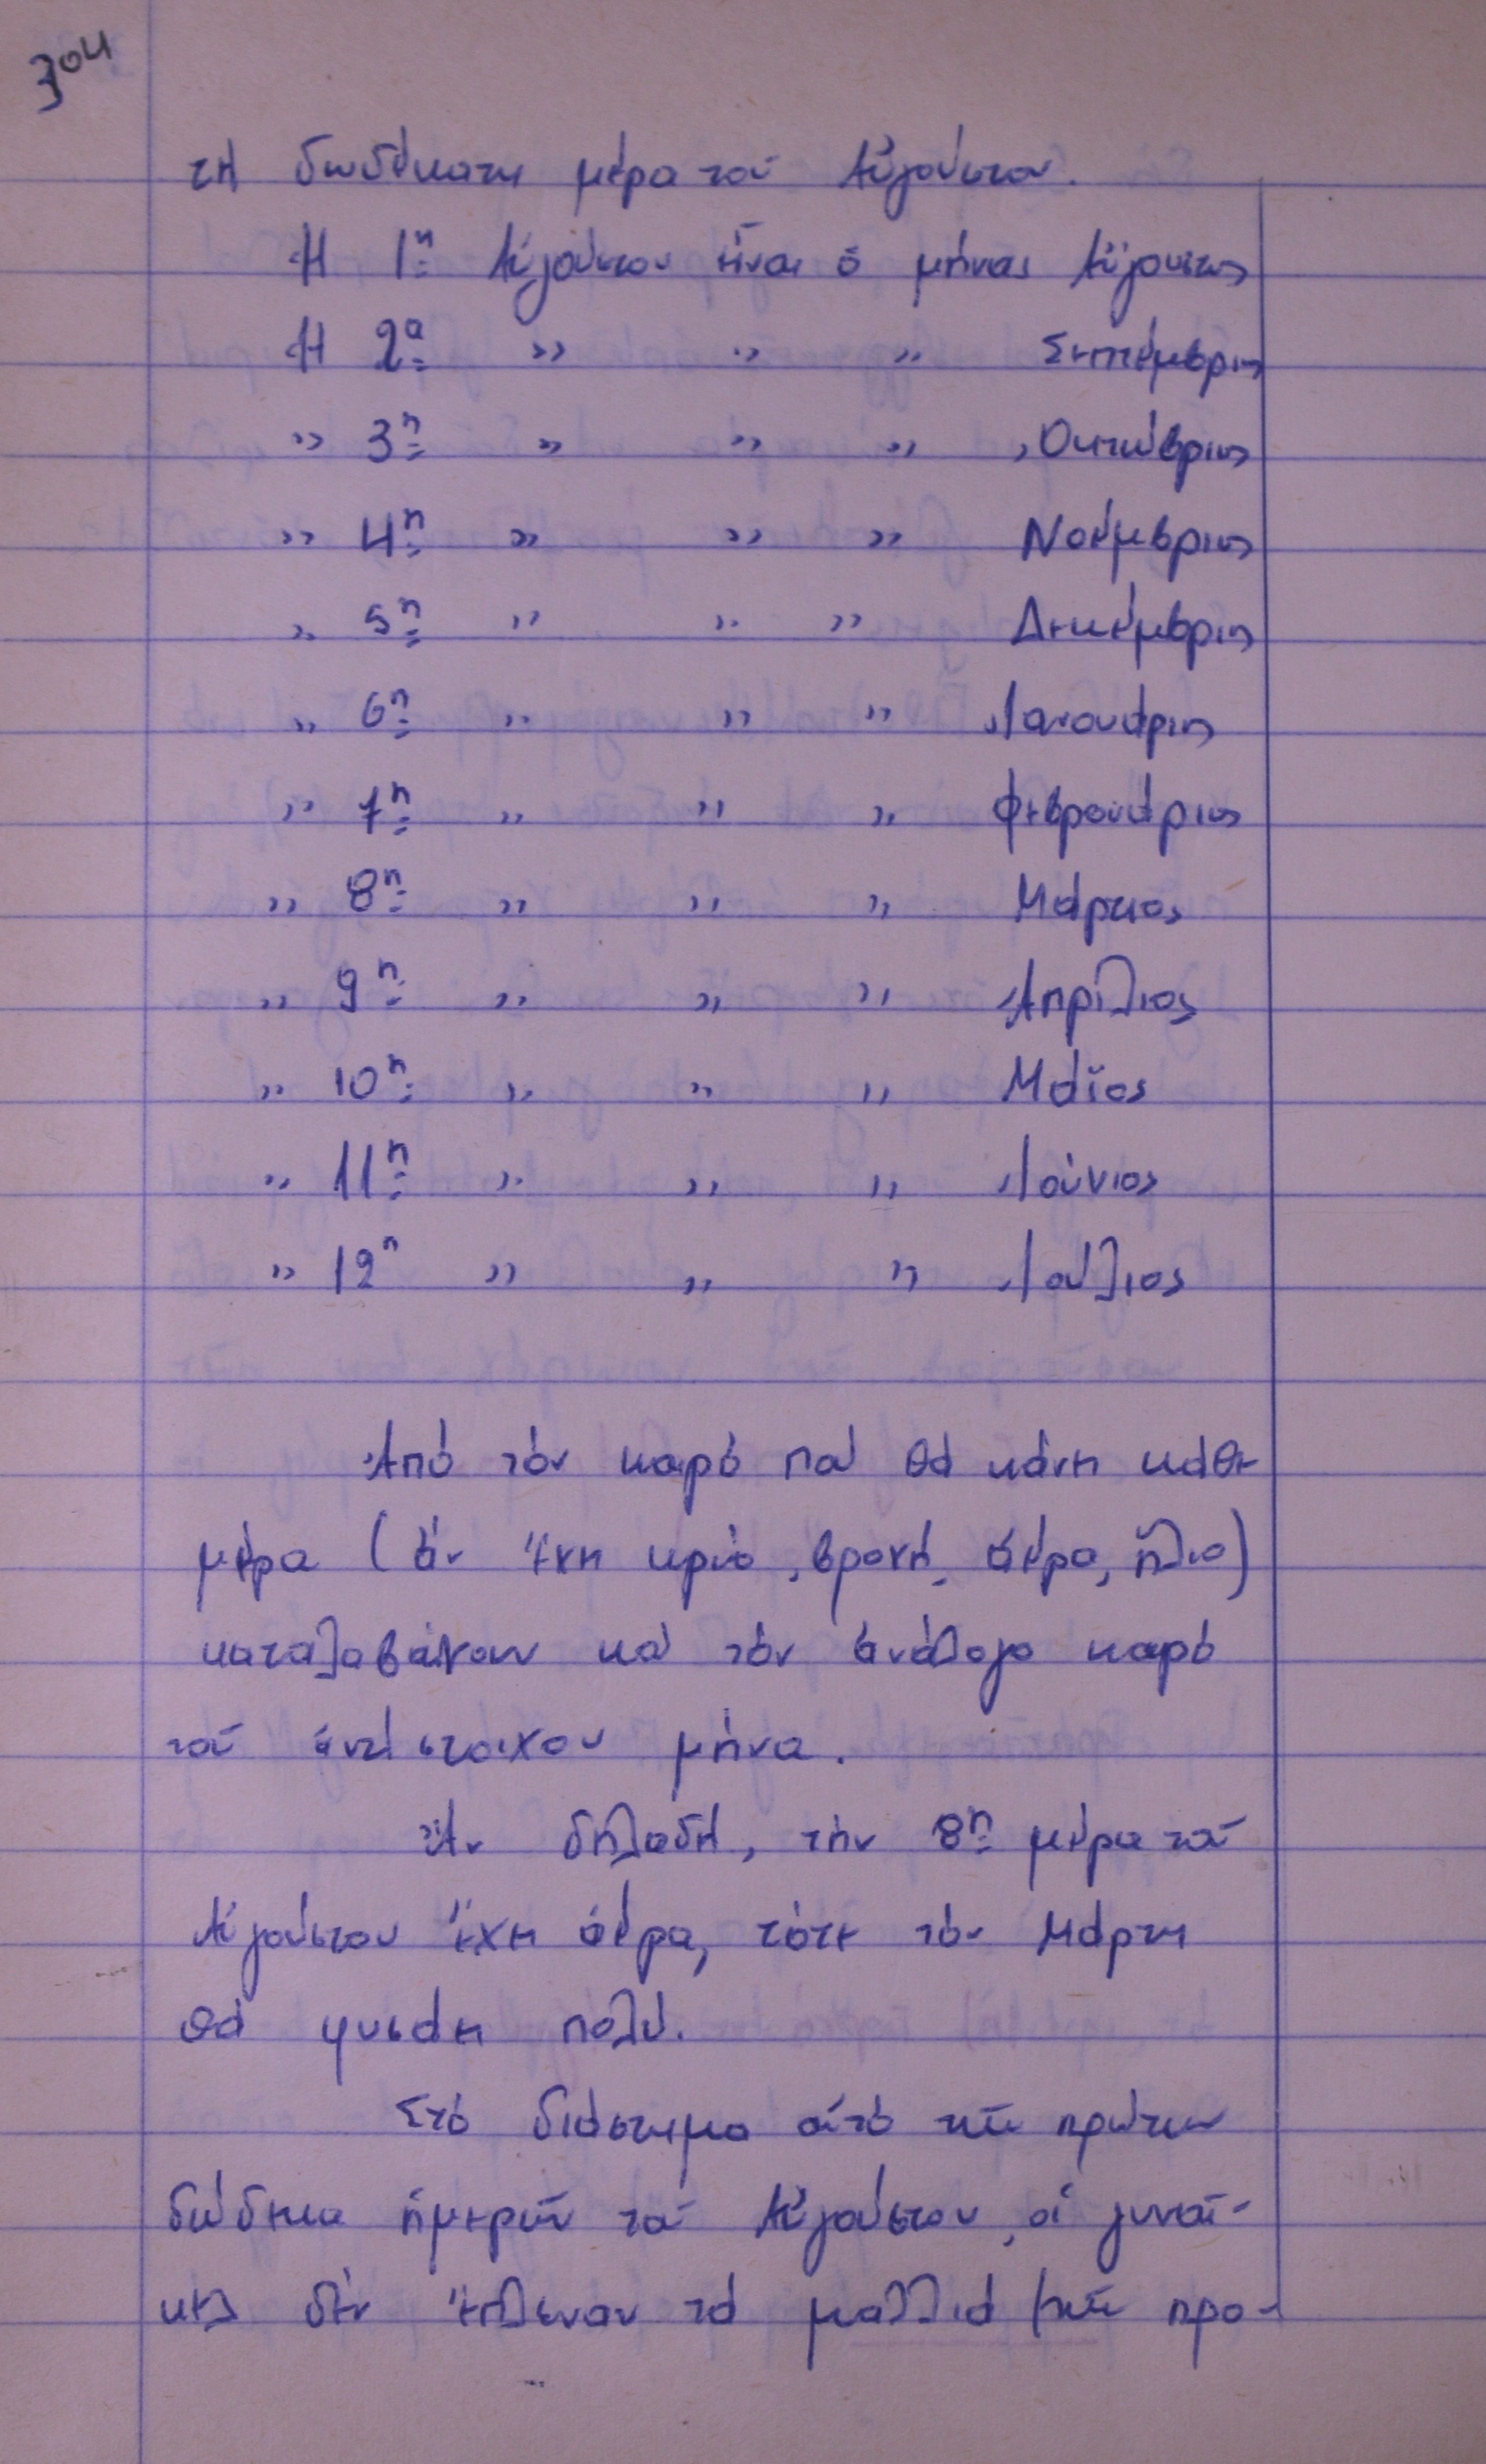 304
τή δωδέκατη μέρα τοῦ Αὐγούστου.
Ἡ 1η Αὐγούστου εἶναι ὁ μήνας Αὔγουστος
Ἡ 2α " " " Σεπτέμβριος
" 3η " " " Ὀκτώβριος
" 4η " " " Νοέμβριος
" 5η " " " Δεκέμβριος
" 6η " " " Ἰανουάριος
" 7η " " " Φεβρουάριος
" 8η " " " Μάρτιος
" 9η " " " Ἀπρίλιος
" 10η " " " Μάϊος
" 11η " " " Ἰούνιος
" 12η " " " Ἰούλιος
Ἀπό τόν καιρό πού θά κάνη κάθε
μέρα (ἄν ἔχη κρύο, βροχή, ἀέρα, ἥλιο)
καταλαβαίνουν καί τόν ἀνάλογο καιρό
τοῦ ἀντίστοιχου μήνα.
Ἄν δηλαδή, τήν 8η μέρα τοῦ
Αὐγούστου ἔχη ἀέρα, τότε τόν Μάρτη
θά φυσάη πολύ.
Στό διάστημα αὐτό τῶν πρώτων
δώδεκα ἡμερῶν τοῦ Αὐγούστου, οἱ γυναῖ-
κες δέν ἔπλεναν τά μαλλιά των προ-